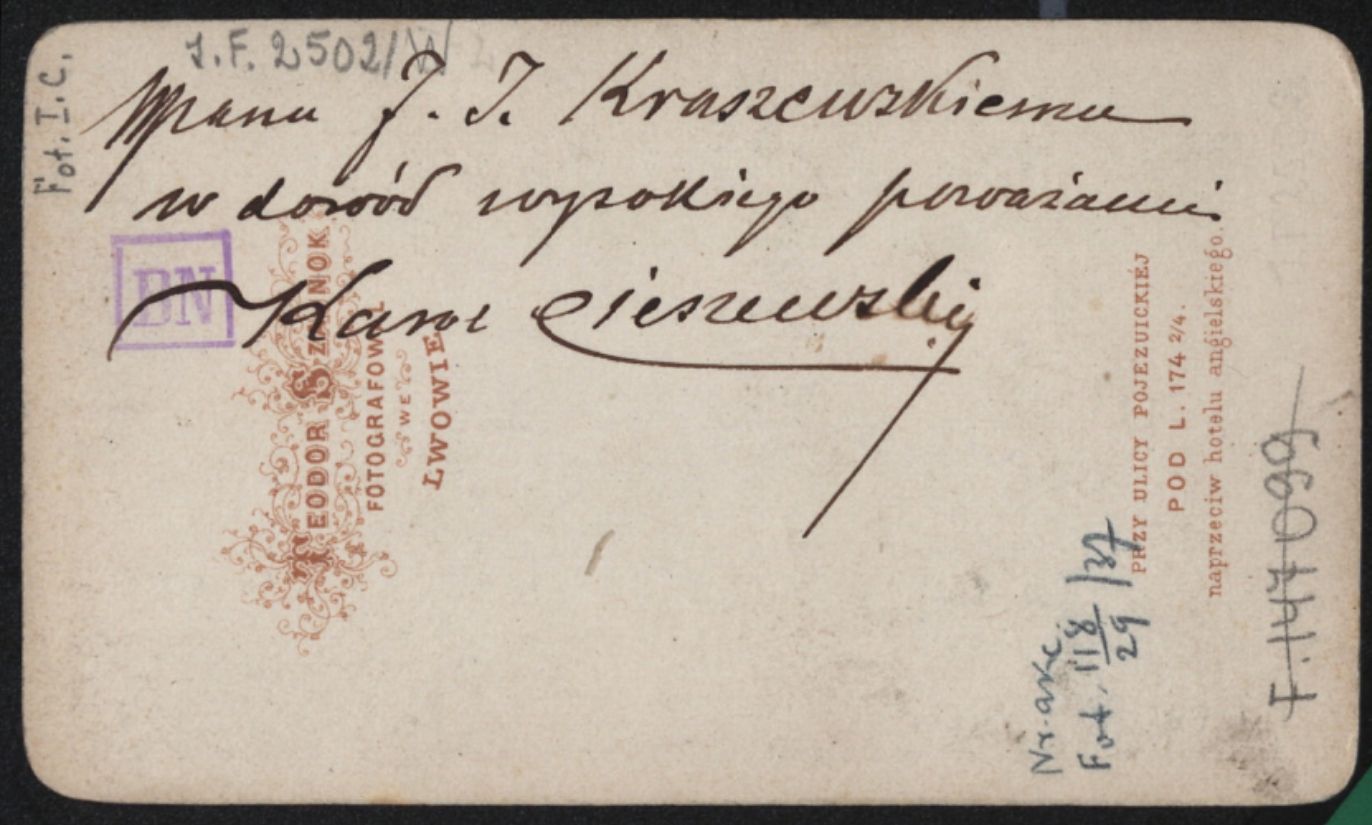 I.F. 2502/W
Fot. I. C.
WPanu J. I. Kraszewskiemu
w dowód wysokiego poważania
Karol Cieszewski
BN
TEODOR SZAJNOK
FOTOGRAFOWAŁ
WE
LWOWIE
PRZY ULICY POJEZUICKIÉJ
POD L. 174 2/4.
naprzeciw hotelu angielskiego.
Nr. akc.
Fot. 118/29 /37
F. 147099